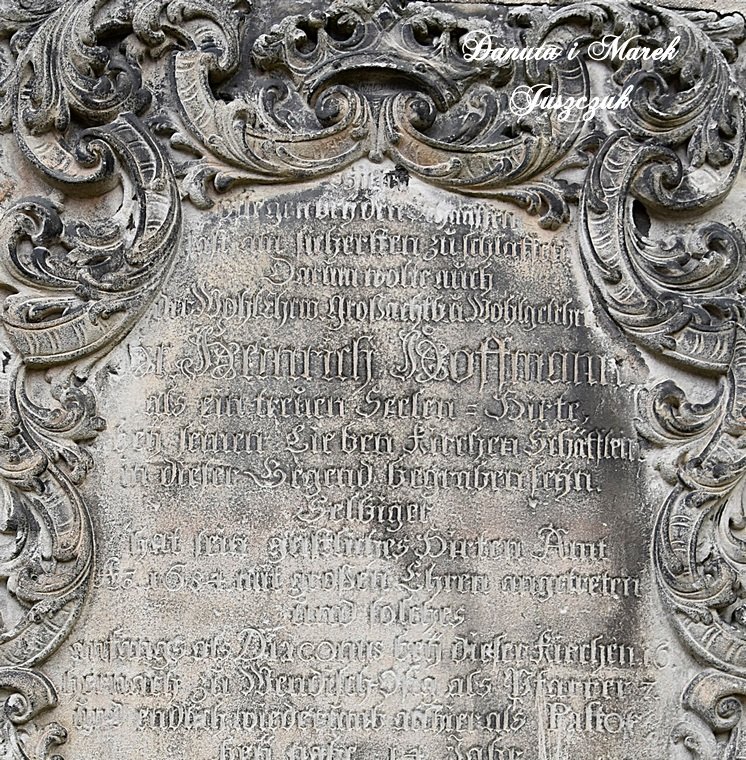 Danuta i Marek
Juszczuk
Hirten
pflegen bey den Schaaffen
am sichersten zu schlaffen
Darum wolte auch
der Wohl Ehrw. Großachtb. u. Wohlgelehr.
Hr. Heinrich Hoffmann
als ein treuer Seelen = Hirte,
bey seinen Lieben Kirchen Schäfflen
in dieser Gegend begraben seyn.
Selbiger
hat sein geistliches Hirten Amt
1684 mit großen Ehren angetreten
und solches
anfangs als DIACONUS bey dieser Kirchen 16.
hernach zu Wendisch-Oßig als Pfarrer
und endlich wiederumb allhier als PASTOR
14 Jahr